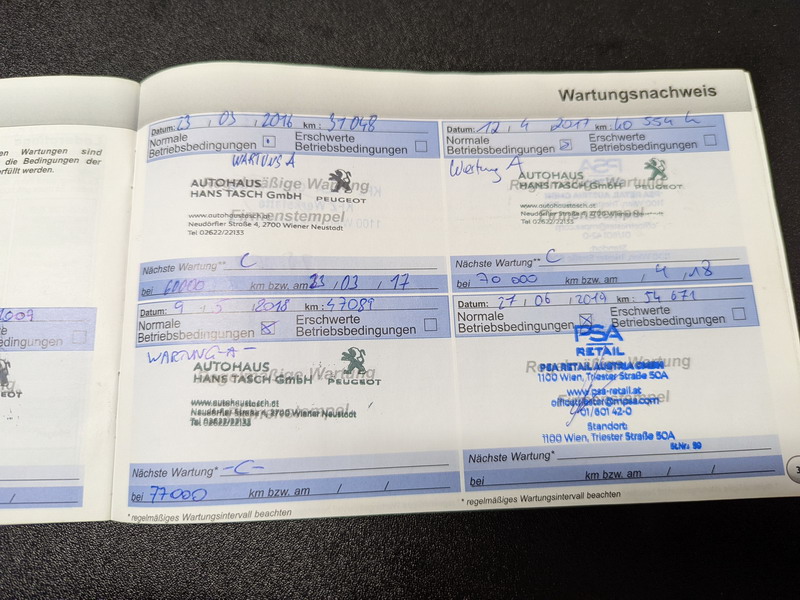 en Wartungen sind
die Bedingungen der
erfüllt werden.
2009
Wartungsnachweis
Datum: 23 , 03 , 2016 km: 31048
Normale
Betriebsbedingungen
Erschwerte
Betriebsbedingungen
WARTUNG A
Regelmäßige Wartung
AUTOHAUS
HANS TASCH GmbH
PEUGEOT
Firmenstempel
www.autohaustasch.at
Neudörfler Straße 4, 2700 Wiener Neustadt
Tel 02622/22133
Nächste Wartung** C
bei 60000 km bzw. am 23 / 03 / 17
Datum: 12 , 4 , 2017 km: 40 554
Normale
Betriebsbedingungen
Erschwerte
Betriebsbedingungen
Wartung A
AUTOHAUS
HANS TASCH GmbH
PEUGEOT
www.autohaustasch.at
Neudörfler Straße 4, 2700 Wiener Neustadt
Tel 02622/22133
Nächste Wartung** C
bei 70 000 km bzw. am / 4 / 18
Datum: 9 , 5 , 2018 km: 47089
Normale
Betriebsbedingungen
Erschwerte
Betriebsbedingungen
WARTUNG-A-
Regelmäßige Wartung
AUTOHAUS
HANS TASCH GmbH
PEUGEOT
Firmenstempel
www.autohaustasch.at
Neudörfler Straße 4, 2700 Wiener Neustadt
Tel 02622/22133
Nächste Wartung* -C-
bei 77000 km bzw. am / /
* regelmäßiges Wartungsintervall beachten
Datum: 27 , 06 , 2019 km: 54 671
Normale
Betriebsbedingungen
Erschwerte
Betriebsbedingungen
PSA
RETAIL
Regelmäßige Wartung
PSA RETAIL AUSTRIA GMBH
1100 Wien, Triester Straße 50A
www.psa-retail.at
officetriester@mpsa.com
01/601 42-0
Standort
1100 Wien, Triester Straße 50A
SLNr.: 59
Nächste Wartung*
bei km bzw. am / /
* regelmäßiges Wartungsintervall beachten
3